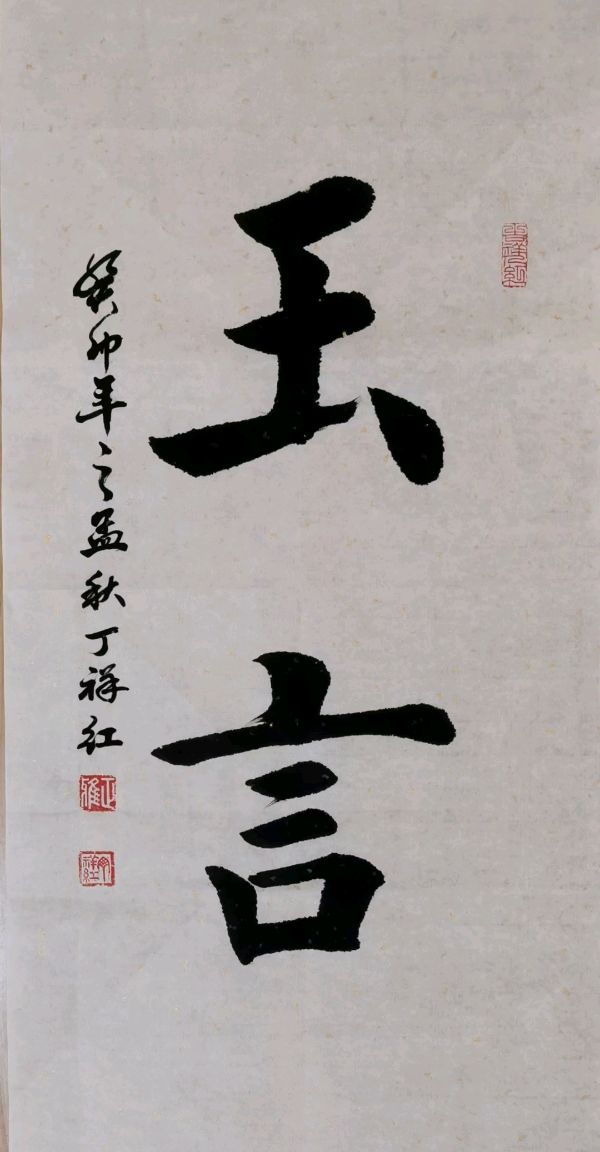 玉言
癸卯年之孟秋丁祥红